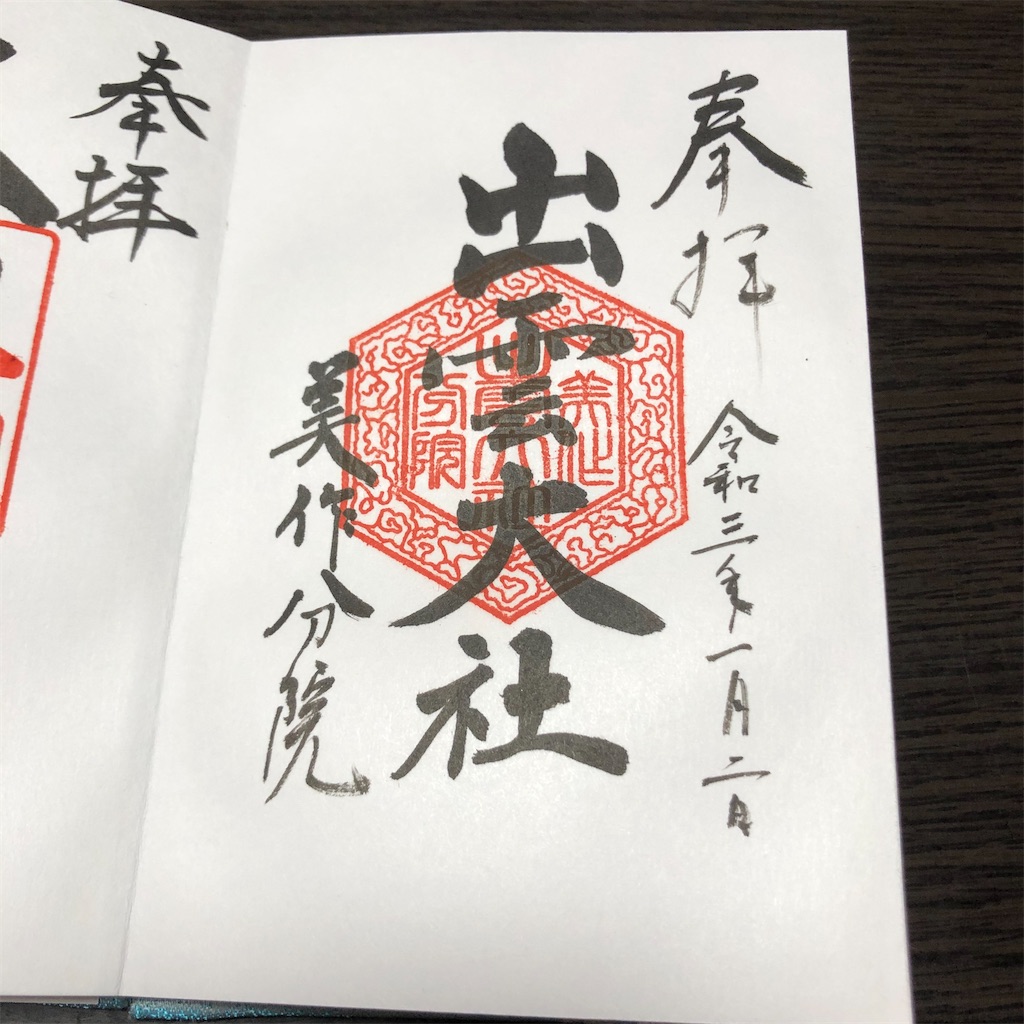 奉拝
令和三年一月二日
出雲大社
美作分院
美作
出雲大社
分院
奉拝